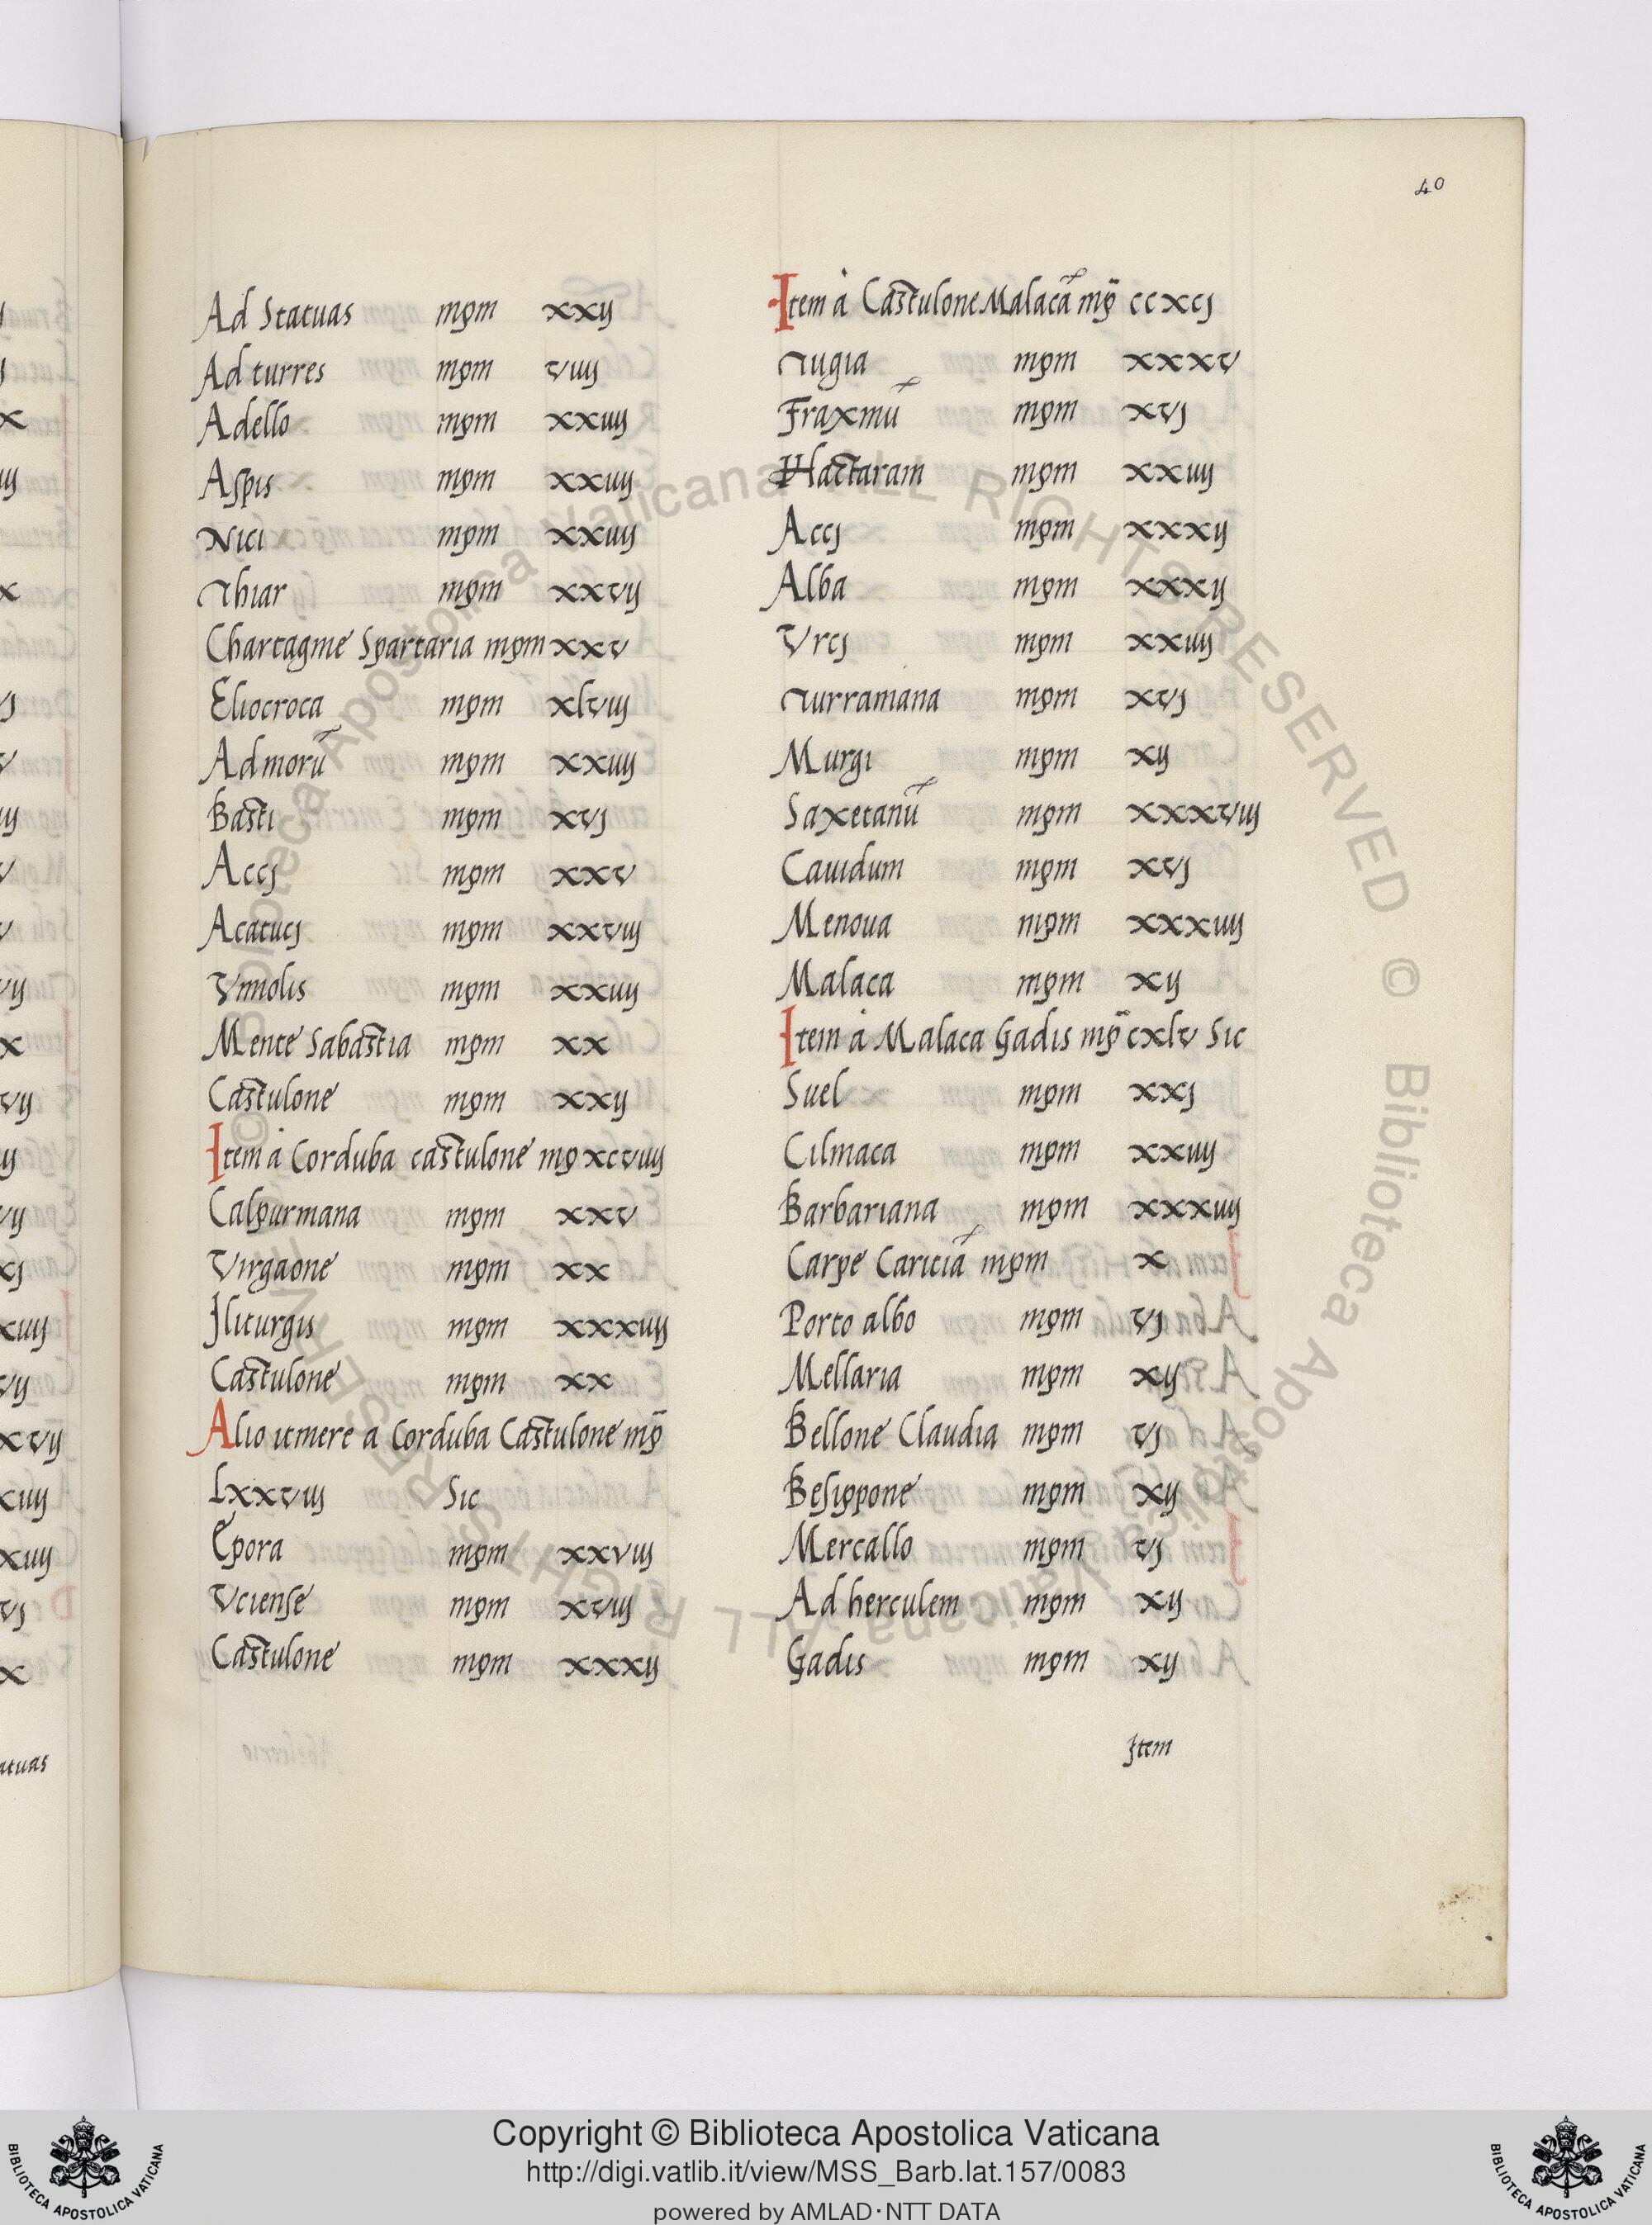 40
Ad Statuas mpm xxij
Ad turres mpm viiij
Adello mpm xxiiij
Aspis mpm xxiiij
Nici mpm xxiiij
Thiar mpm xxvij
Chartagine Spartaria mpm xxv
Eliocroca mpm xlviij
Ad morũ mpm xxiiij
Basti mpm xvj
Accj mpm xxv
Acatucj mpm xxviij
Viniolis mpm xxiiij
Mente Sabastia mpm xx
Castulone mpm xxij
Item à Corduba castulone mp xcviiij
Calpurniana mpm xxv
Virgaone mpm xx
Iliturgis mpm xxxiiij
Castulone mpm xx
Alio itinere a Corduba Castulone mp̃
Lxxviij Sic
Epora mpm xxviij
Vciense mpm xviij
Castulone mpm xxxij
Item à Castulone Malacã mp̃ ccxcj
Tugia mpm xxxv
Fraxinũ mpm xvj
Hactaram mpm xxiiij
Accj mpm xxxij
Alba mpm xxxij
Vrcj mpm xxiiij
Turraniana mpm xvj
Murgi mpm xij
Saxetanũ mpm xxxviij
Cauidum mpm xvj
Menoua mpm xxxiiij
Malaca mpm xij
Item à Malaca Gadis mp̃ cxlv Sic
Suel mpm xxj
Cilniaca mpm xxiiij
Barbariana mpm xxxiiij
Carpe Cariciã mpm x
Porto albo mpm vj
Mellaria mpm xij
Bellone Claudia mpm vj
Besippone mpm xij
Mercallo mpm vj
Ad herculem mpm xij
Gadis mpm xij
Item
Copyright © Biblioteca Apostolica Vaticana
http://digi.vatlib.it/view/MSS_Barb.lat.157/0083
powered by AMLAD·NTT DATA